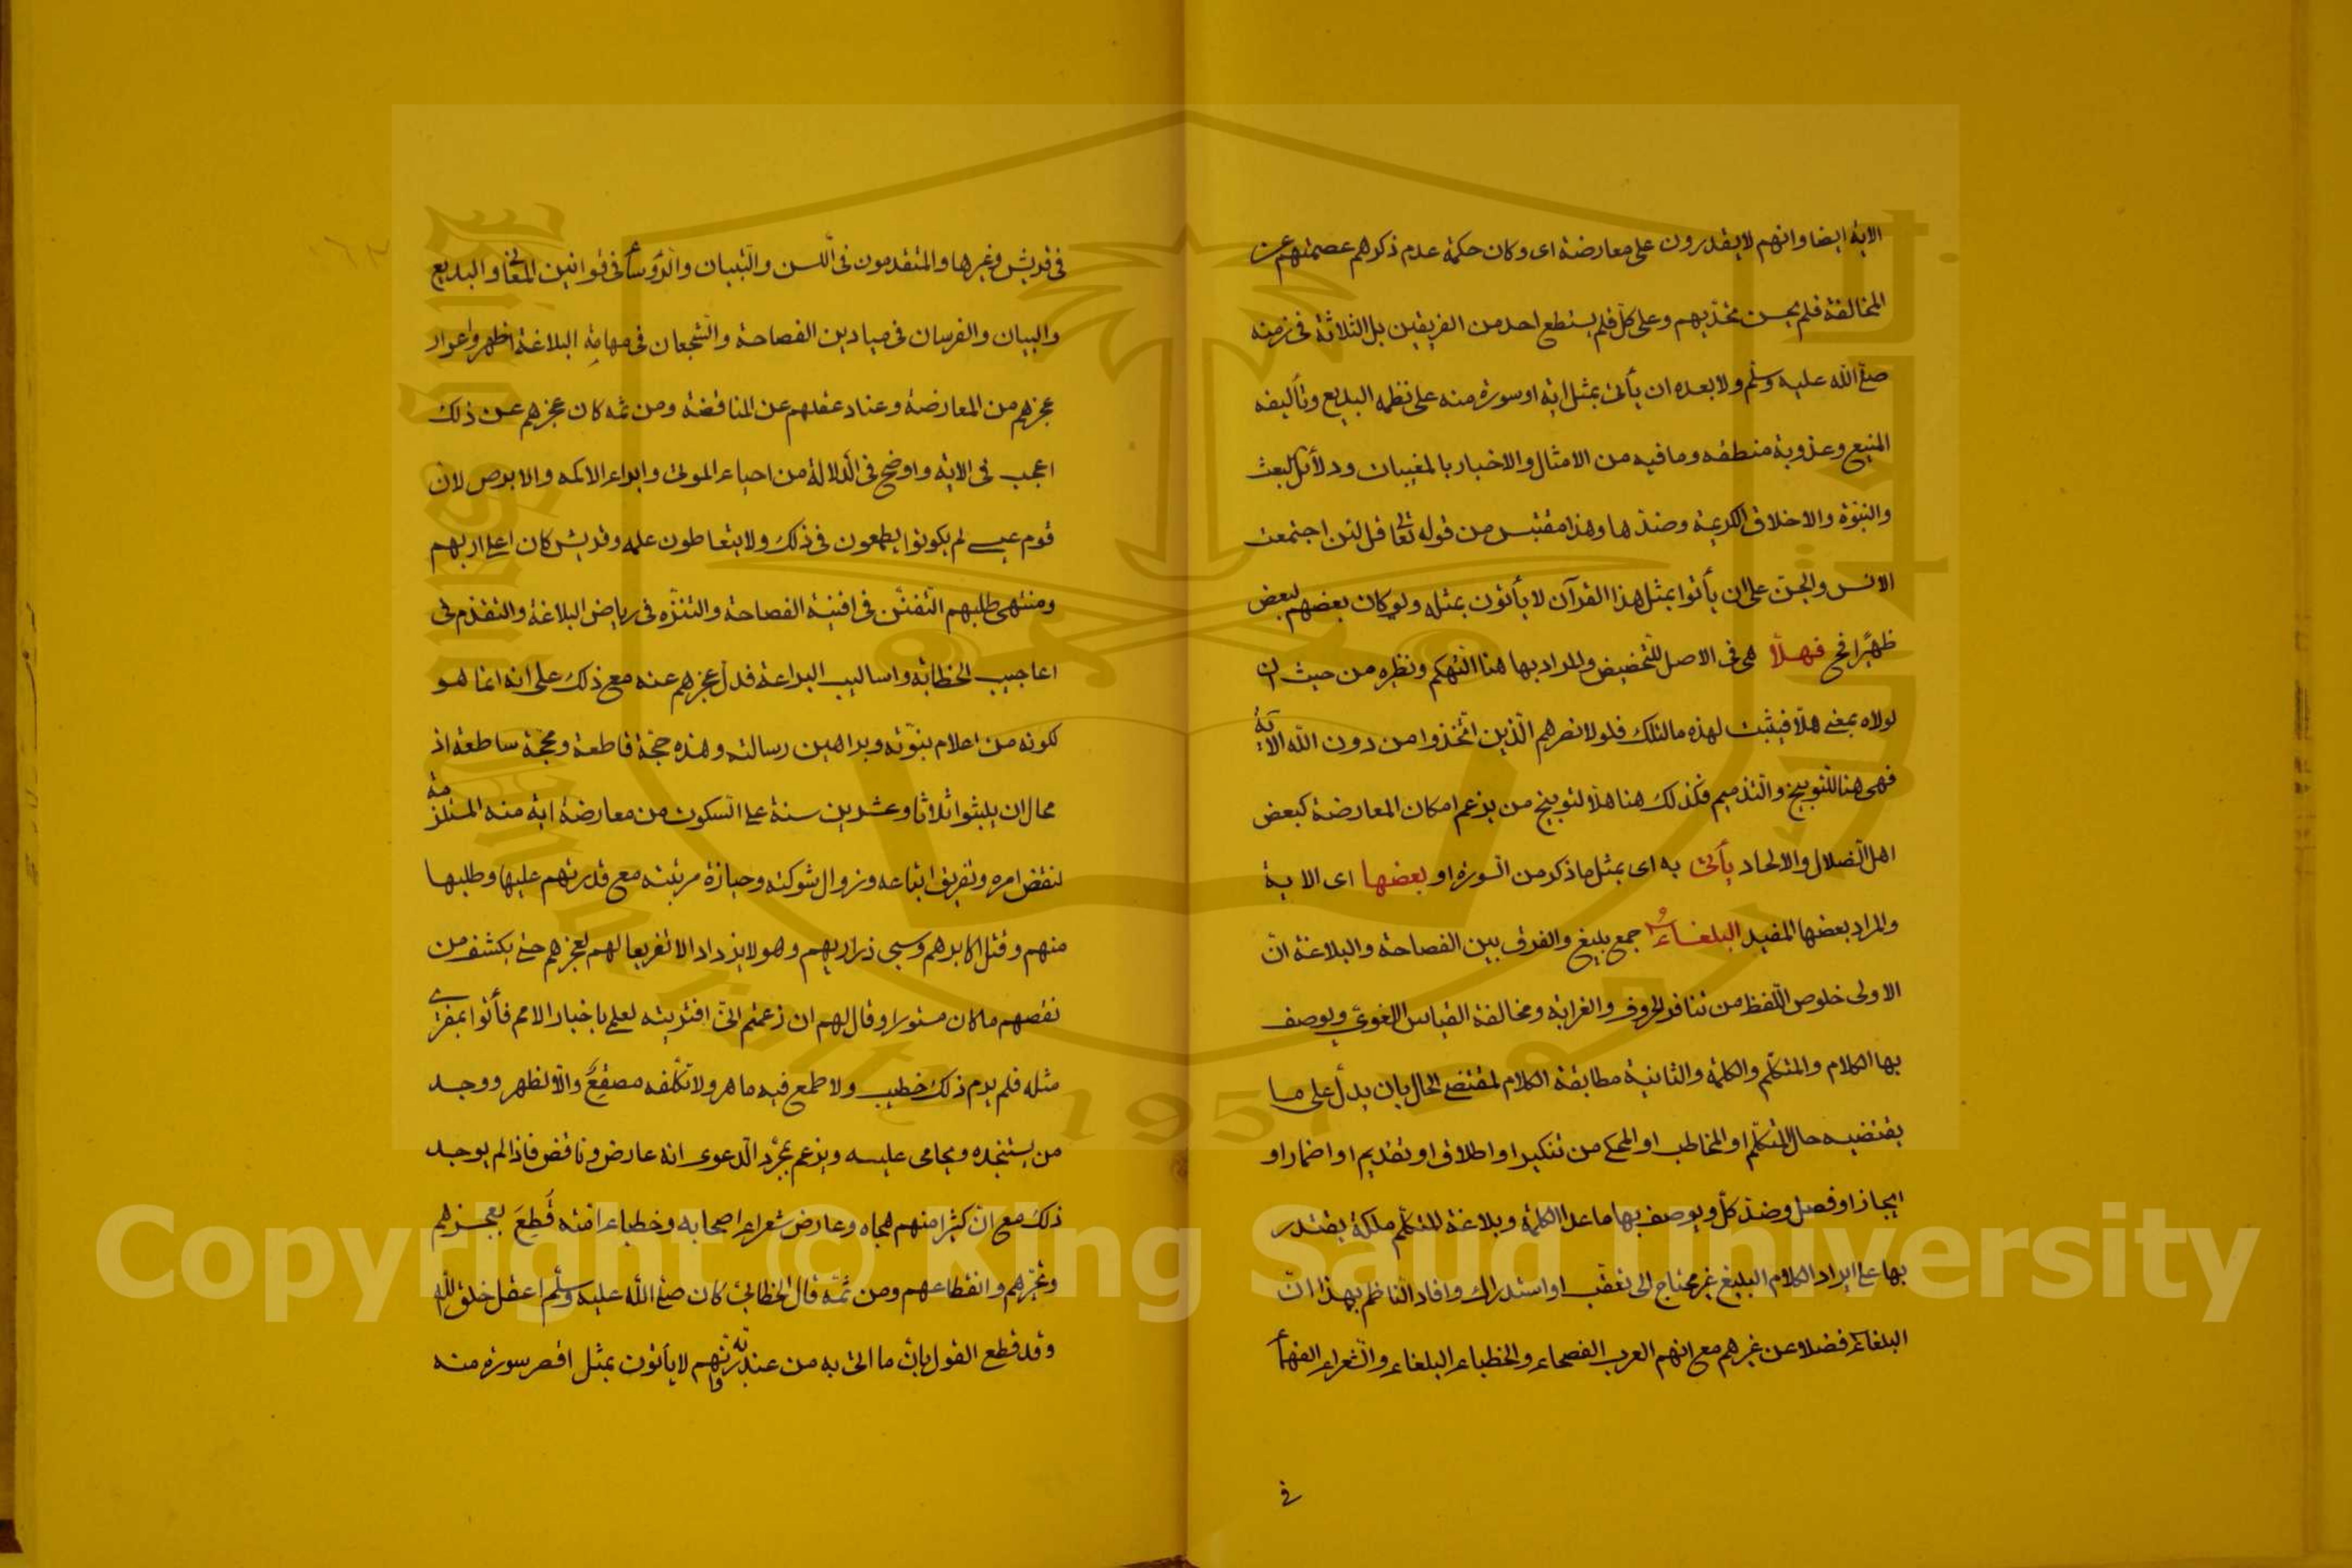 الاية ايضا وانهم لا يقدرون على معارضة اى وكان حكمة عدم ذكرهم عصمتهم عن
المخالفة فلم يحسن تحديهم وعلى كل فلم يستطع احد من الفريقين بل الثلاثة فى زمنه
صلى الله عليه وسلم ولا بعده ان يأتى بمثل اية او سورة منه على نظمه البديع وتأليفه
المنيع وعذوبة منطقه وما فيه من الامثال والاخبار بالمغيبات ودلائل البعث
والنبوّة والاخلاق الكريمة وضدها وهذا مقتبس من قوله تعالى قل لئن اجتمعت
الانس والجنّ على ان يأتوا بمثل هذا القرآن لا يأتون بمثله ولو كان بعضهم لبعض
ظهيرًا فح فهلّا هى فى الاصل للتحضيض والمراد بها هنا التهكم ونظيره من حيث ان
لولا بمعنى هلّا فيثبت لهذه ما لتلك فلولا نصرهم الّذين اتّخذوا من دون الله الاية
فهى هنا للتوبيخ والتنديم فكذلك هنا هلّا لتوبيخ من يزعم امكان المعارضة كبعض
اهل الضلال والالحاد يأتى به اى بمثل ما ذكر من السورة او بعضها اى الاية
والمراد بعضها المفيد البلغاءُ جمع بليغ والفرق بين الفصاحة والبلاغة انّ
الاولى خلوص اللّفظ من تنافر الحروف والغرابة ومخالفة القياس اللغوىّ ويوصف
بها الكلام والمتكلّم والكلمة والثانية مطابقة الكلام لمقتضى الحال بان يدلّ على ما
يقتضيه حال المتكلّم او المخاطب او المحكى من تنكير او اطلاق او تقديم او اضمار او
ايجاز او فصل وضدّ كلّ ويوصف بها ما عدا الكلمة وبلاغة المتكلّم ملكة يقتدر
بها على ايراد الكلام البليغ غير محتاج الى تعقّب او استدراك وافاد النّاظم بهذا انّ
البلغاء فضلا عن غيرهم مع انهم العرب الفصحاء والخطباء البلغاء والشعراء الفهماء
فى
فى قريش وغيرها والمتقدمون فى اللسن والتبيان والرؤساء فى قوانين المعانى والبديع
والبيان والفرسان فى ميادين الفصاحة والشجعان فى مهامِهِ البلاغة اظهروا عوار
عجزهم من المعارضة وعناد عقلهم عن المناقضة ومن ثمه كان عجزهم عن ذلك
اعجب فى الاية واوضح فى الدّلالة من احياء الموتى وابراء الاكمه والابرص لانّ
قوم عيسى لم يكونوا يطمعون فى ذلك ولا يتعاطون علمه وقريش كان اعلى اربهم
ومنتهى طلبهم التّفنّن فى افنية الفصاحة والتنزّه فى رياض البلاغة والتقدّم فى
اعاجيب الخطابة واساليب البراعة فدلّ عجزهم عنه مع ذلك على انه انما هو
لكونه من اعلام نبوّته وبراهين رسالته وهذه حجّة قاطعة ومحجّة ساطعة اذ
محال ان يلبثوا ثلاثا وعشرين سنة على السّكوت من معارضة اية منه المستلزمة
لنقض امره وتفريق اتباعه وزوال شوكته وحيازة مرتبته مع قدرتهم عليها وطلبها
منهم وقتل اكابرهم وسبى ذراريهم وهو لا يزداد الا تقريعا لهم لعجزهم حتى يكشف من
نقصهم ما كان مستورا وقال لهم ان زعمتم انّى افتريته لعلمى باخبار الامم فأتوا بمفترى
مثله فلم يرم ذلك خطيب ولا طمع فيه ماهر ولا تكلّفه مصقعٌ والّا لظهر ووجد
من يستنجده ويحامى عليه ويزعم بمجرّد الدعوى انه عارض وناقض فاذا لم يوجد
ذلك مع انّ كثيرا منهم هجاه وعارض شعراء اصحابه وخطباء امته قُطِعَ بعجزهم
وتحيّرهم وانقطاعهم ومن ثمّة قال الخطابىّ كان صلى الله عليه وسلم اعقل خلق الله
وقد قطع القول بانّ ما اتى به من عند ربّه وانّهم لا يأتون بمثل اقصر سورة منه
Copyright © King Saud University
1957